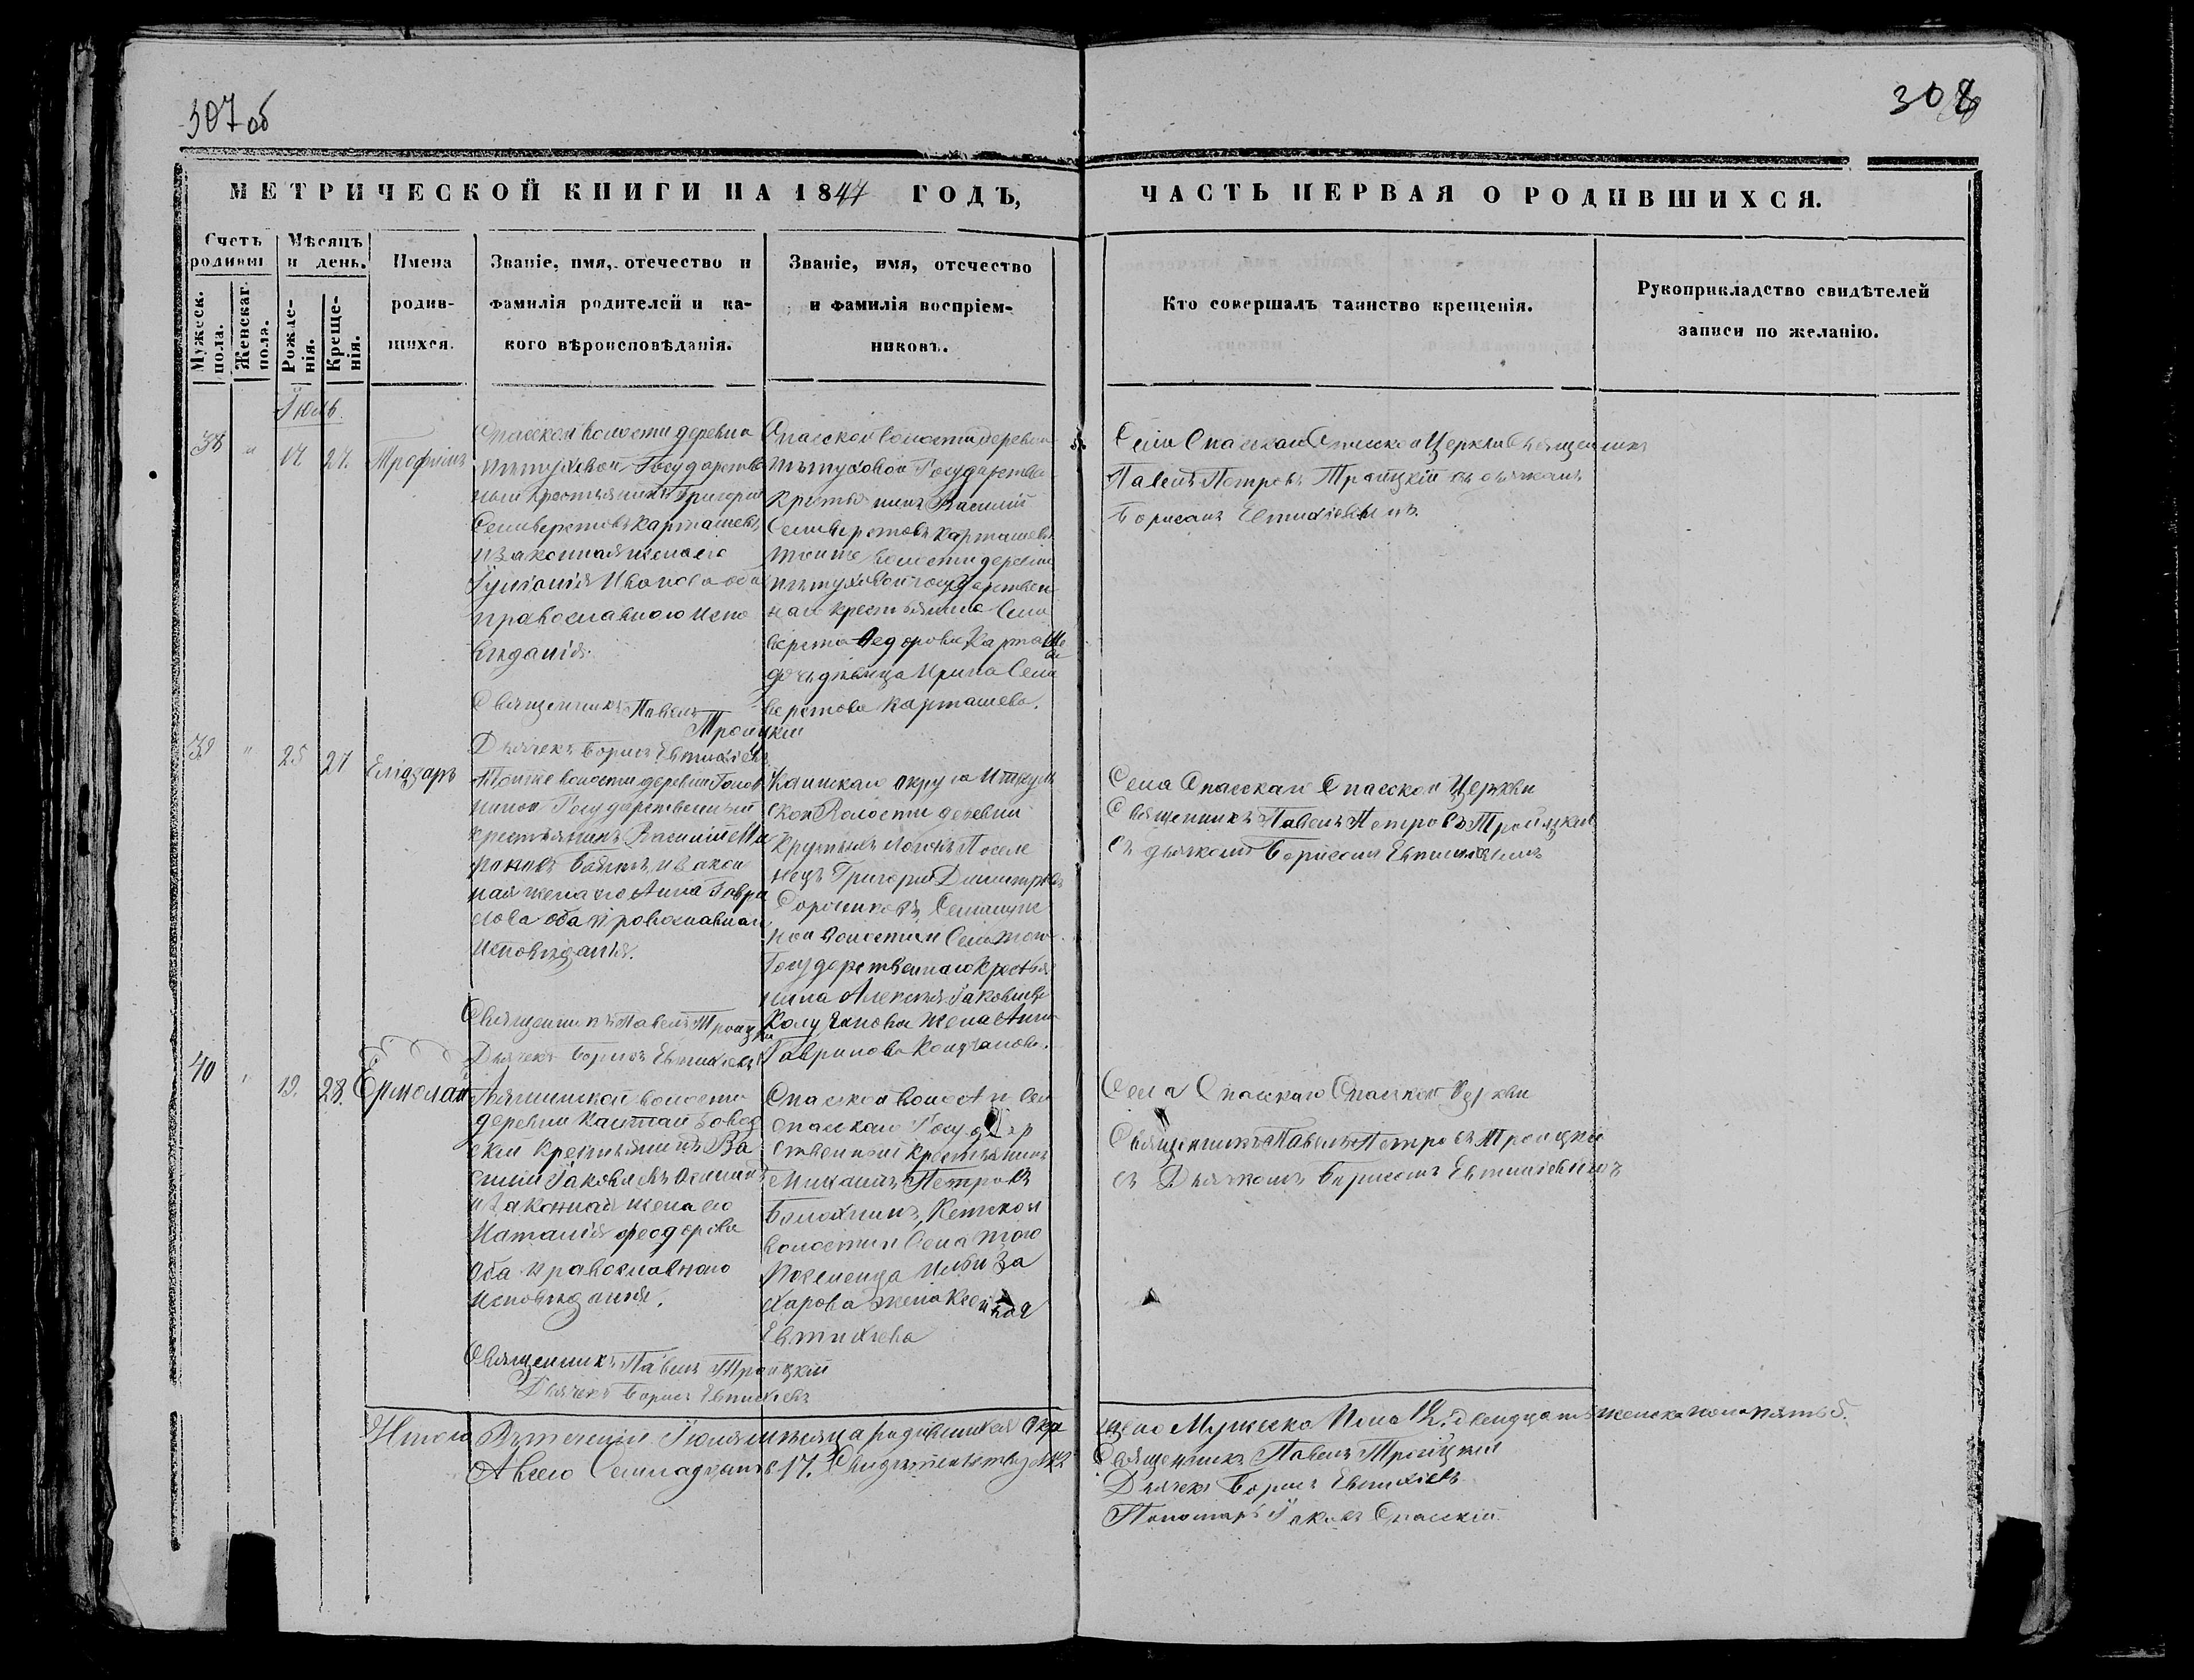 307 об
308
МЕТРИЧЕСКОЙ КНИГИ НА 1847 ГОДЪ,
ЧАСТЬ ПЕРВАЯ О РОДИВШИХСЯ.
Счетъ родивш.
Мѣсяцъ и день.
Мужеск. пола.
Женскаг. пола.
Рожде-
нія.
Креще-
нія.
Имена
родив-
шихся.
Званіе, имя, отечество и
фамилія родителей и ка-
кого вѣроисповѣданія.
Званіе, имя, отечество
и фамилія воспріем-
никовъ.
Кто совершалъ таинство крещенія.
Рукоприкладство свидѣтелей
записи по желанію.
Іюль
38 " 17. 27. Трофимъ
Спасской волости деревни
Пѣтуховой Государствен
ный крестьянинъ Григорій
Селиверстовъ Карташевъ
и законная жена его
Іуліанія Иванова оба
православнаго испо
вѣданія.
Священникъ Павелъ
Троицкій
Дьячекъ Борисъ Евтихіевъ
Спасской волости деревни
Пѣтуховой Государствен
крестьянинъ Василій
Селиверстовъ Карташевъ
тойже волости деревни
Пѣтуховой государствен
наго крестьянина Сели
верста Федорова Карташе
ва
дочь дѣвица Ирина Сели
верстова Карташева.
Села Спасскаго Спасской Церкви Священникъ
Павелъ Петровъ Троицкій съ дьячкомъ
Борисомъ Евтихіевымъ.
39 " 25 27 Еліазаръ
Тойже волости деревни
Государственный
крестьянинъ Василій
и закон
ная жена его Анна Гаври
лова оба православнаго
исповѣданія.
Священникъ Павелъ Троицкій
Дьячекъ Борисъ Евтихіевъ
Каинскаго округа
ской Волости деревни
Крутыхъ Логовъ Поселе
нецъ Григорій Димитріевъ
Сорокиковъ
ной волости и Села того
Государственнаго крестья
нина Алексѣя Іаковлева
Колуганова жена Анна
Гаврилова Колуганова.
Села Спасскаго Спасской Церкви
Священникъ Павелъ Петровъ Троицкій
съ дьячкомъ Борисомъ Евтихіевымъ
40 " 19. 28. Ермолай
волости
деревни
крестьянинъ Ва
силій Іаковлевъ
и законная жена его
Наталія Феодорова
Оба православнаго
исповѣданія.
Священникъ Павелъ Троицкій
Дьячекъ Борисъ Евтихіевъ
Спасской волости села
Спасскаго Государ
ственный крестьянинъ
Михаилъ Петровъ
Болохнинъ, Кетской
волости и Села того
Поселенца Ильи За
харова жена Ксенія
Евтихіева
Села Спасскаго Спасской Церкви
Священникъ Павелъ Петровъ Троицкій
съ Дьячкомъ Борисомъ Евтихіевымъ
Итого Въ теченіи Іюля мѣсяца родившихся окре
щено Мужеска Пола 12. двенадцать женска пола пять 5.
А всего Семнадцать 17. Свидѣтельствуемъ
Священникъ Павелъ Троицкій
Дьячекъ Борисъ Евтихіевъ
Пономарь Іаковъ Спасскій.